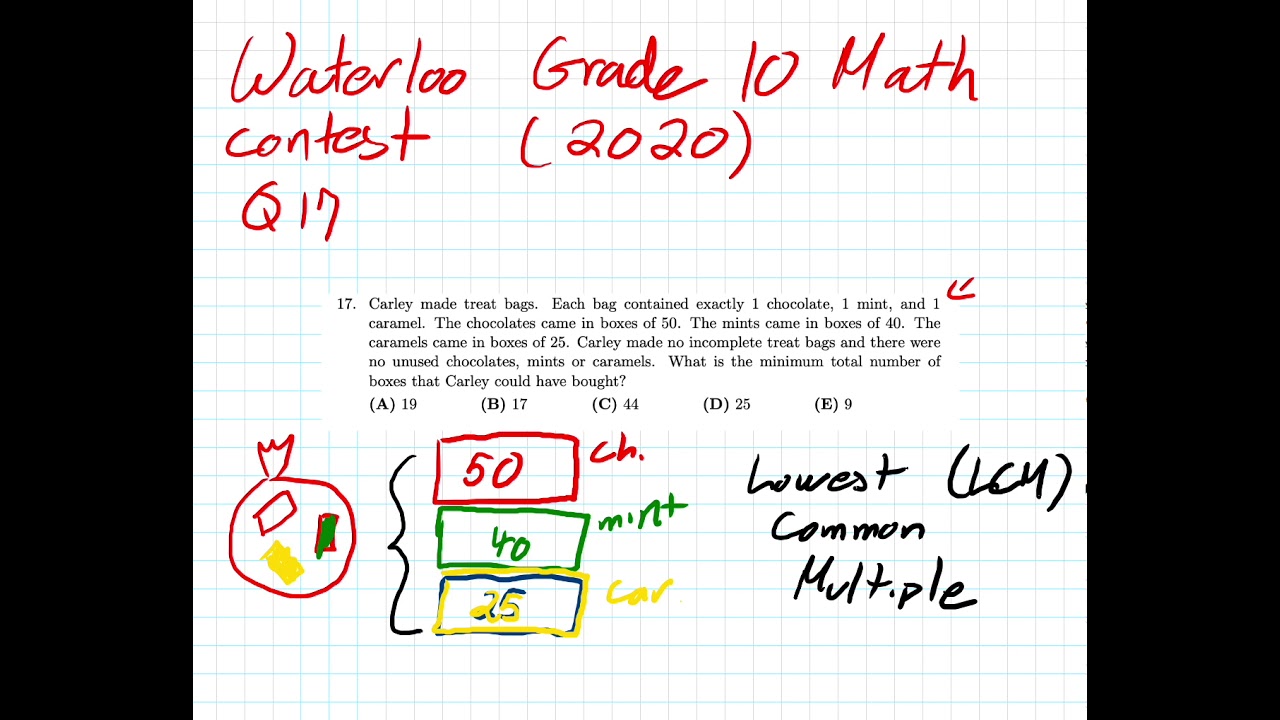 Waterloo Grade 10 Math
contest (2020)
Q17
17. Carley made treat bags. Each bag contained exactly 1 chocolate, 1 mint, and 1
caramel. The chocolates came in boxes of 50. The mints came in boxes of 40. The
caramels came in boxes of 25. Carley made no incomplete treat bags and there were
no unused chocolates, mints or caramels. What is the minimum total number of
boxes that Carley could have bought?
(A) 19 (B) 17 (C) 44 (D) 25 (E) 9
50 ch.
40 mint
25 car.
Lowest (LCM)
Common
Multiple